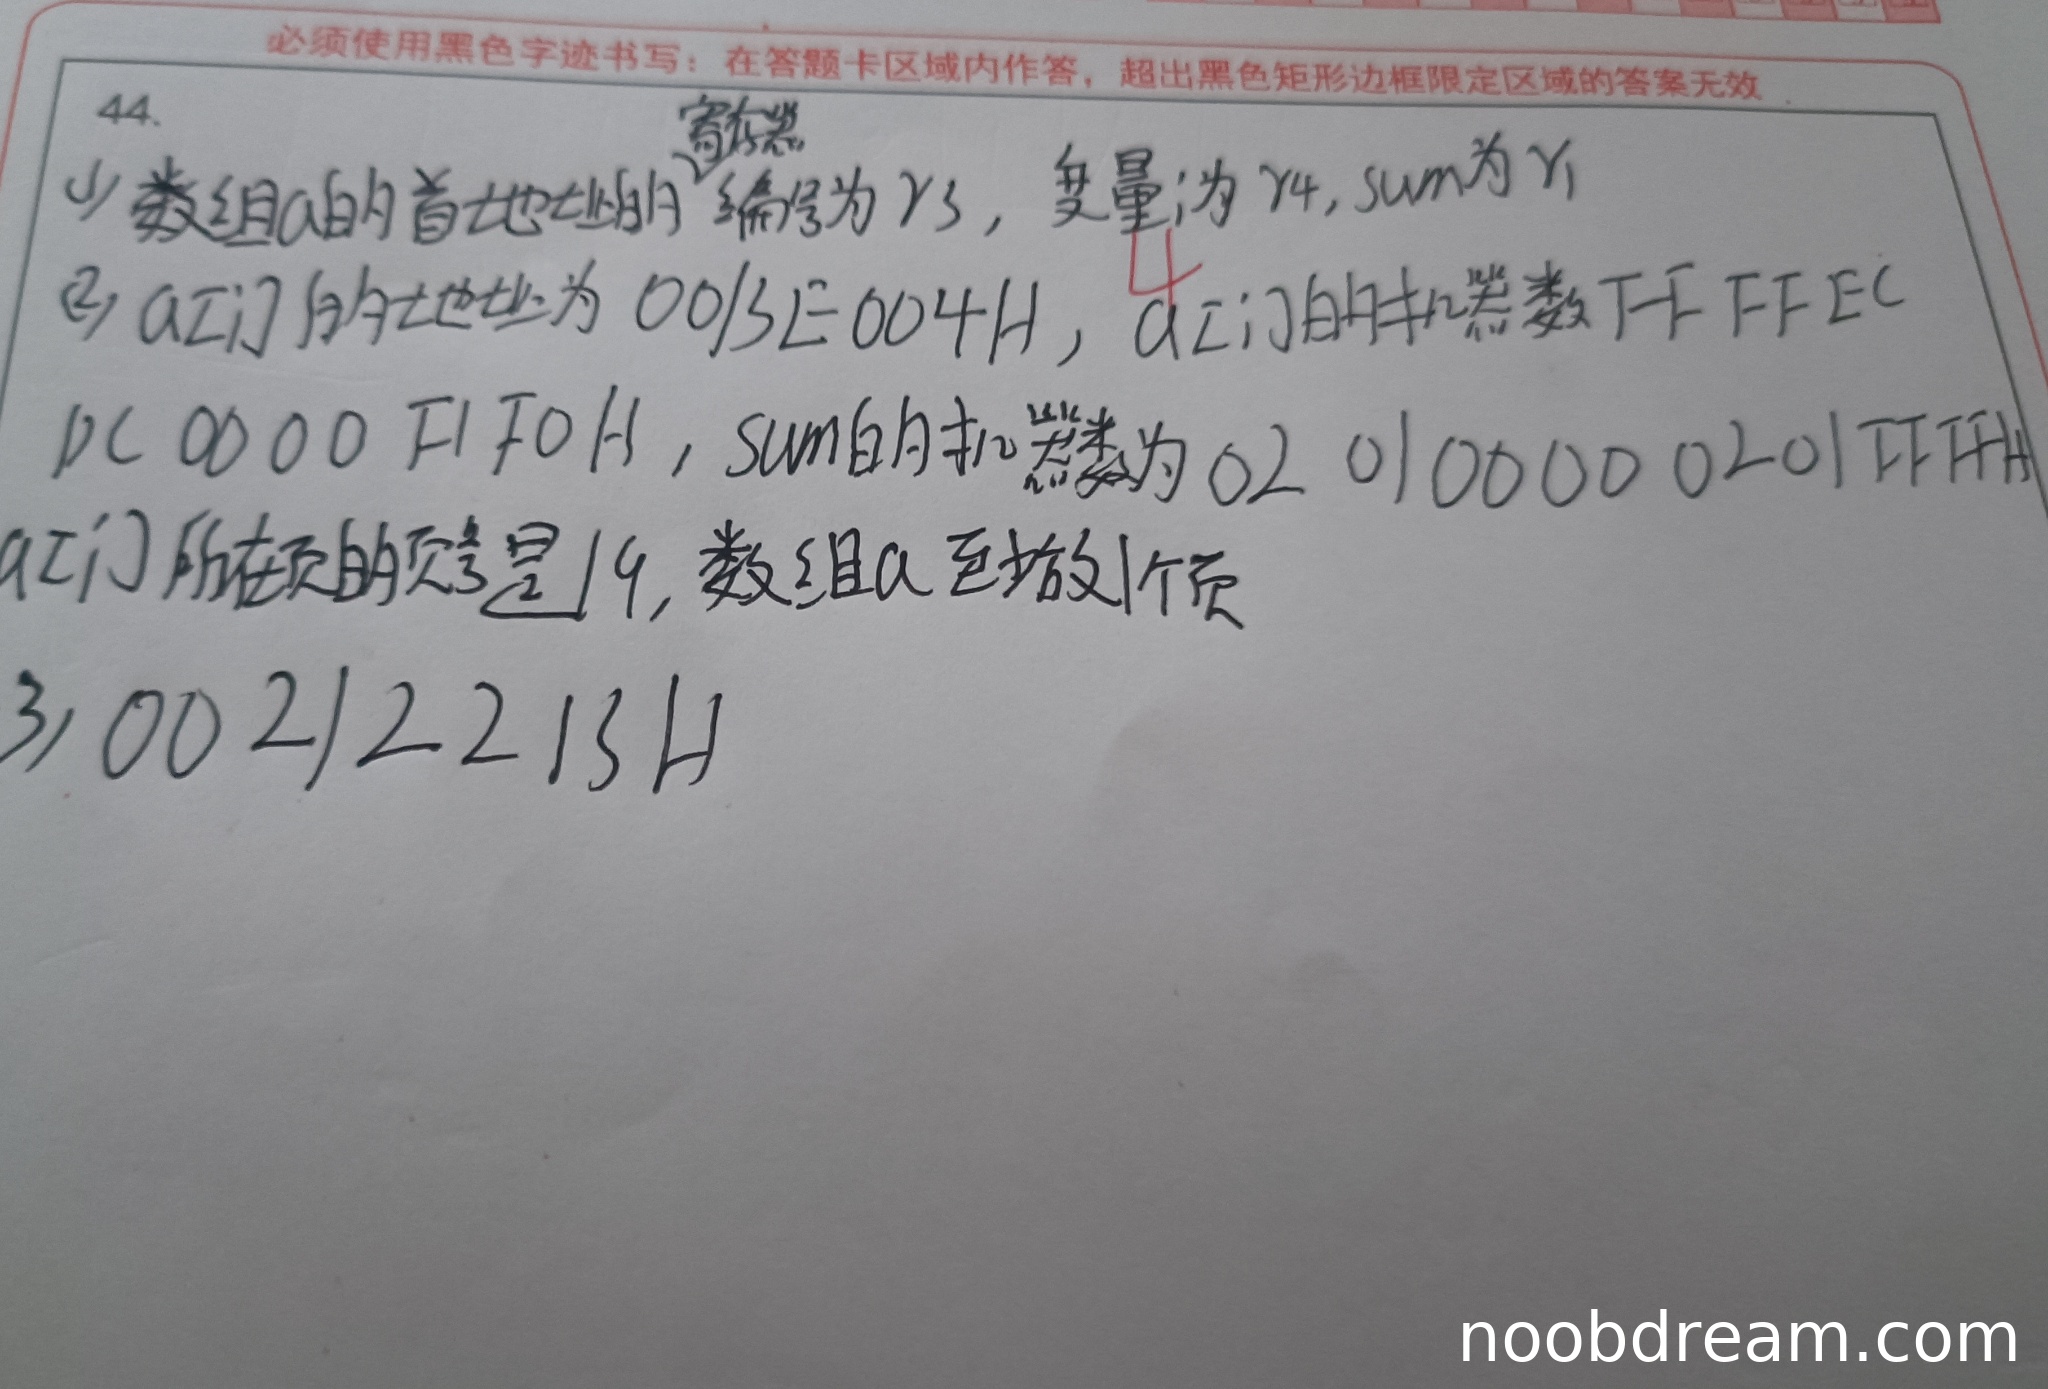 必须使用黑色字迹书写：在答题卡区域内作答，超出黑色矩形边框限定区域的答案无效
44.
寄存器
(1) 数组a的首地址的编号为r3，变量i为r4，sum为r1
4
(2) a[i]的地址为0013E004H，a[i]的机器数FFFFEC
DC0000F1F0H，sum的机器数为020100000201FFFFH
a[i]所在页的页号是19，数组a至少放1个页
3) 00212213H
noobdream.com